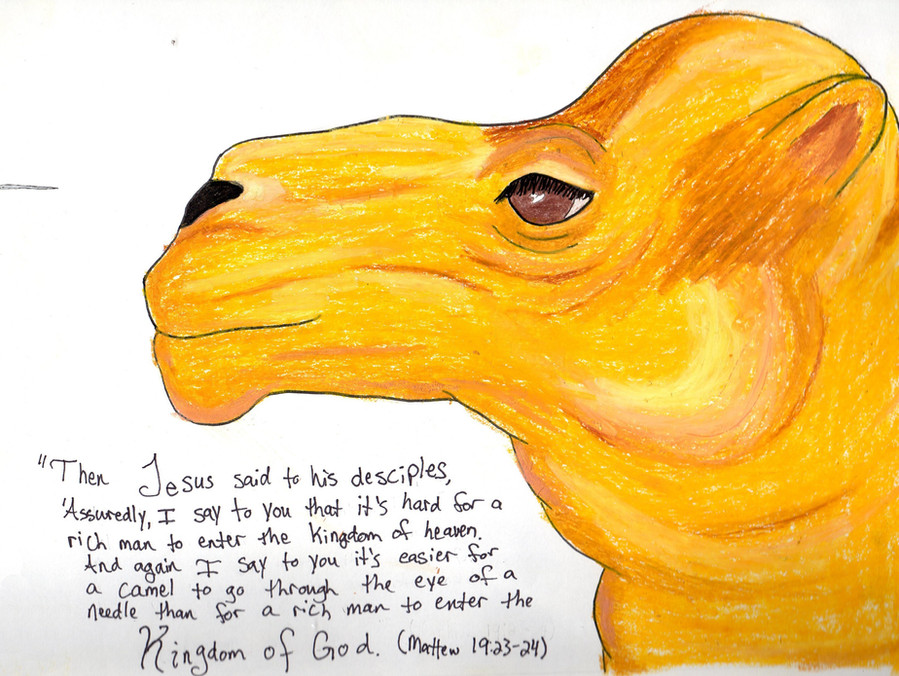 "Then Jesus said to his desciples,
'Assuredly, I say to you that it's hard for a
rich man to enter the kingdom of heaven.
And again I say to you it's easier for
a camel to go through the eye of a
needle than for a rich man to enter the
Kingdom of God. (Mattew 19:23-24)